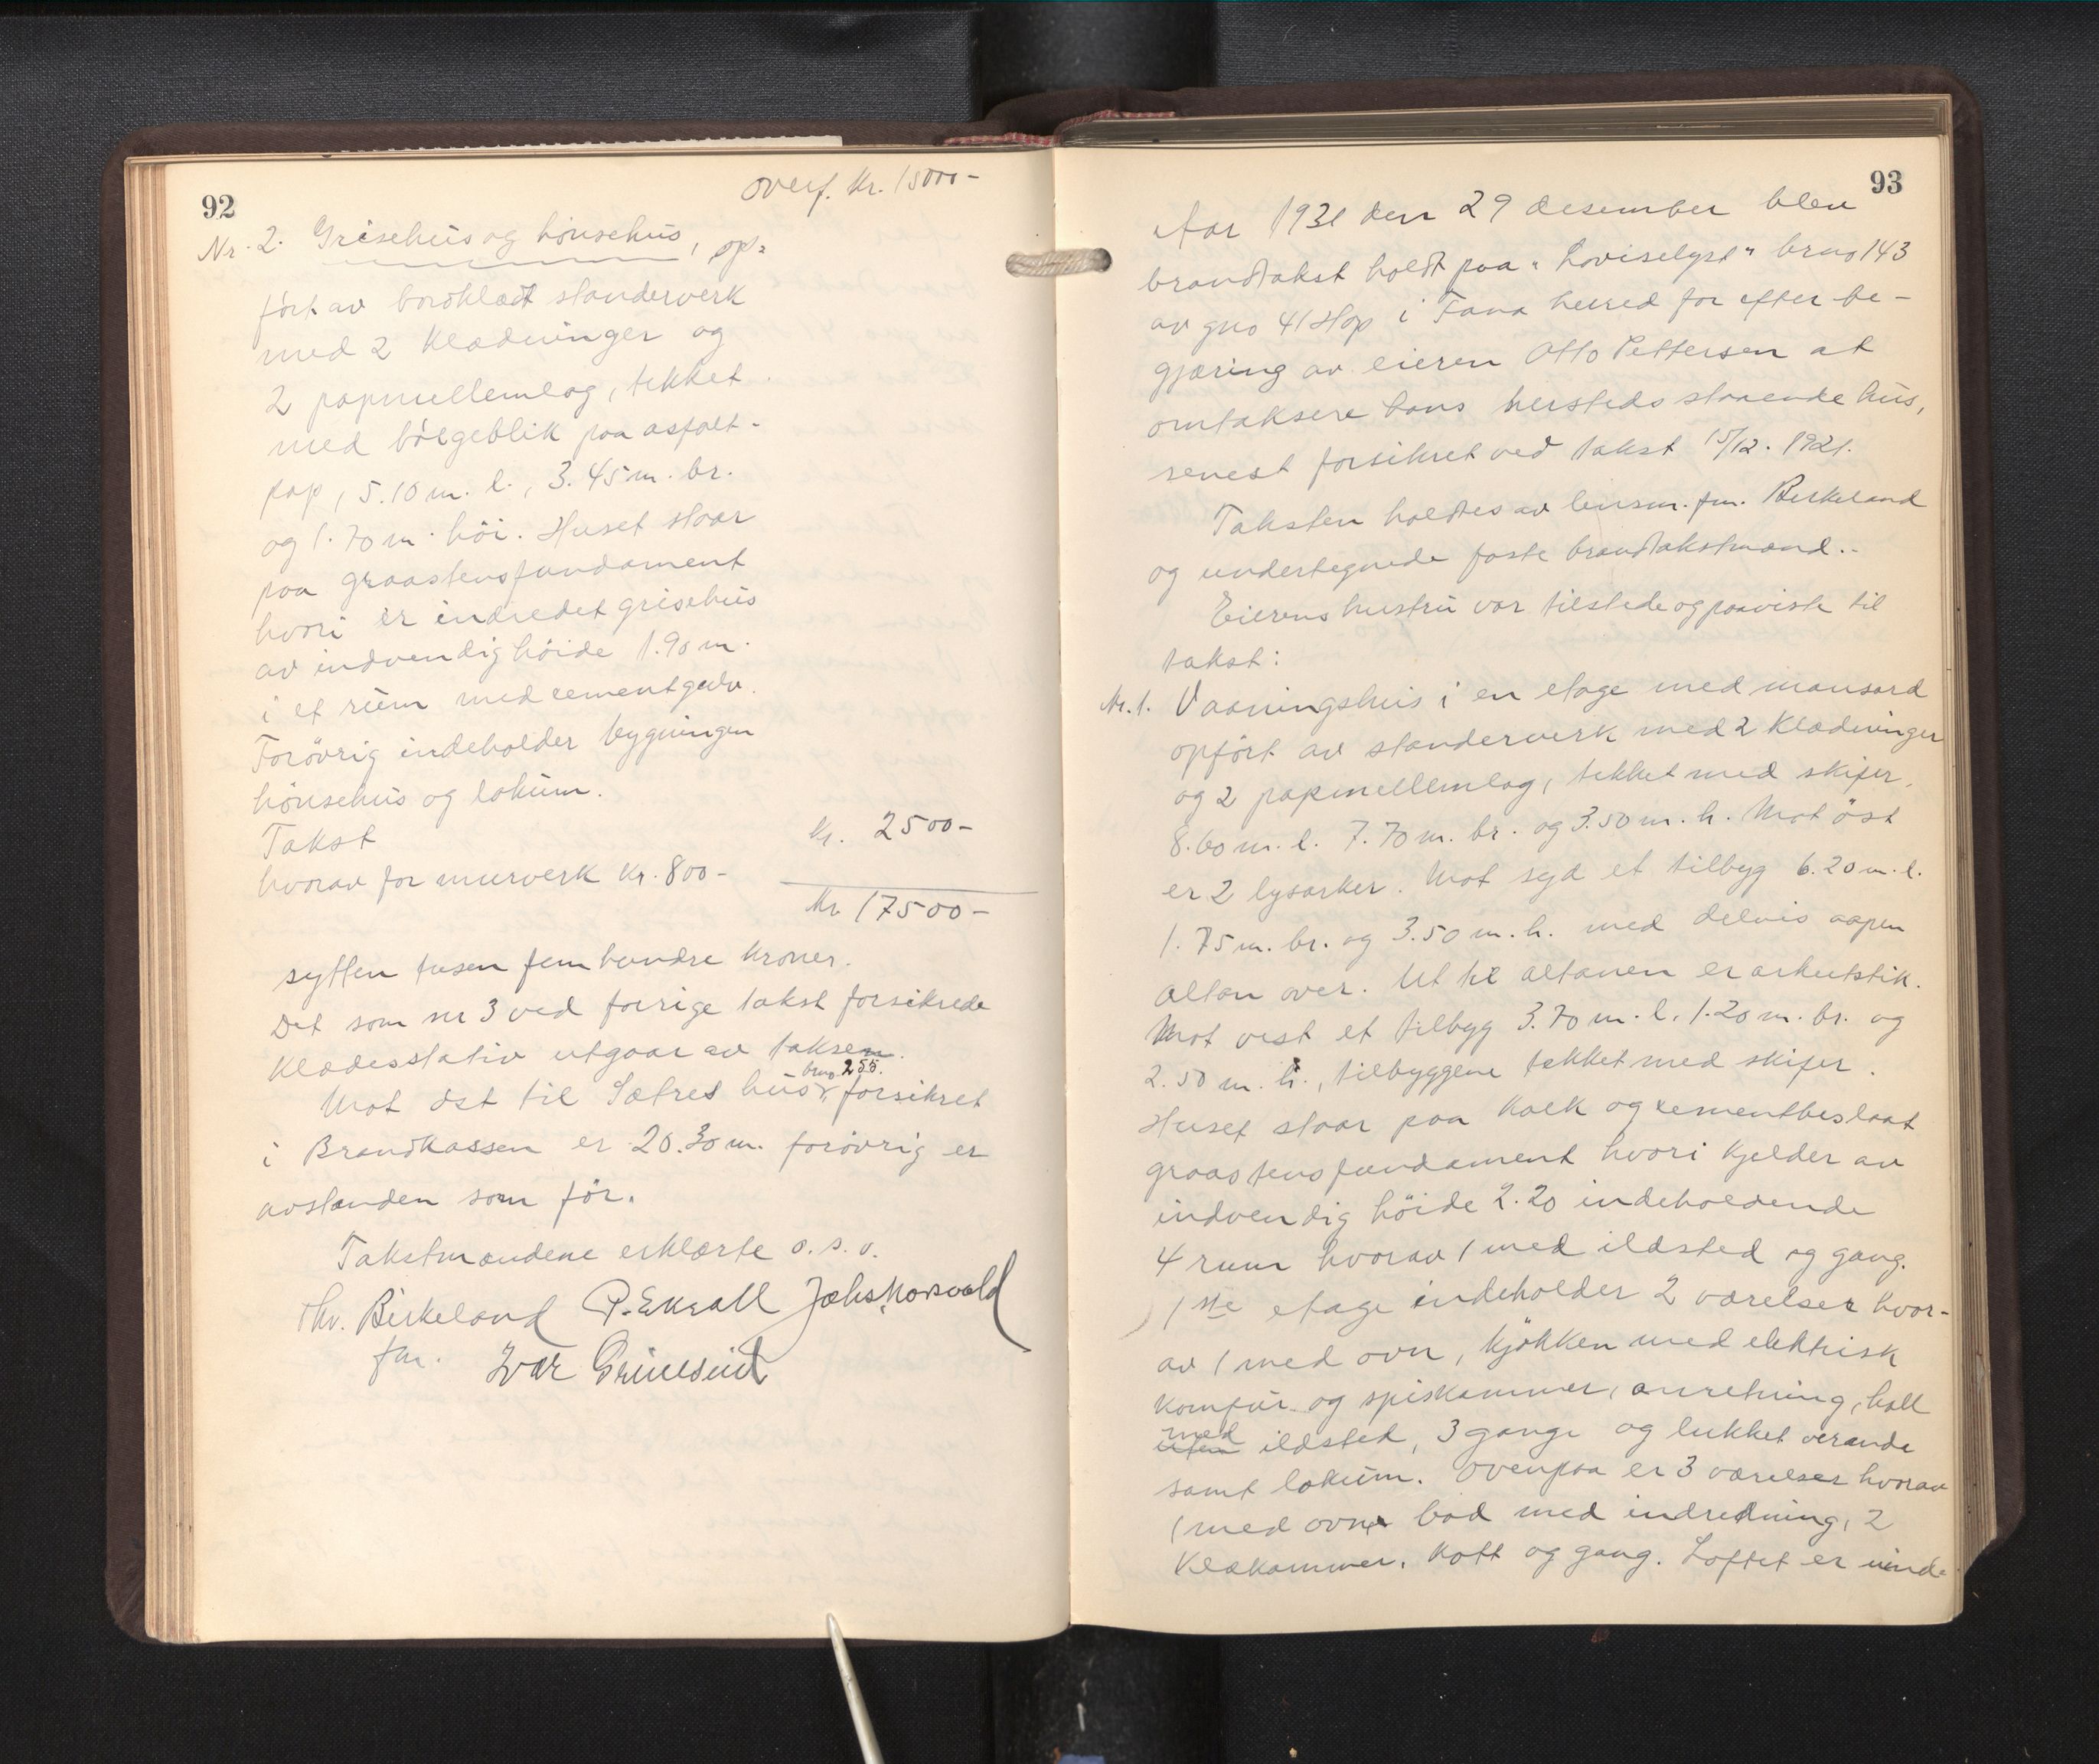 92
overf. Kr. 15000-
Nr. 2. Grisehus og hönsehus, op-
fört av bordklædt standerverk
med 2 klædninger og
2 papmellemlag, tekket
med bölgeblik paa asfalt-
pap, 5.10 m. l., 3.45 m. br.
og 1.70 m. höi. Huset staar
paa graastensfundament
hvori er indredet grisehus
av indvendig höide 1.90 m.
i et rum med cementgulv.
Forövrig indeholder bygningen
hönsehus og lokum.
Takst Kr. 2500-
hvorav for murverk Kr. 800-
Kr. 17500-
sytten tusen fem hundre kroner.
Det som nr 3 ved forrige takst forsikrede
klædesstativ utgaar av taksten.
bruno 255.
Mot öst til Sætres hus forsikret
i Brandkassen er 20.30 m. forövrig er
avstanden som för.
Takstmændene erklærte o. s. v.
Thv. Birkeland P. Ekrall Johs. Korsvold
fm. Ivar Grimseid
93
Aar 1931 den 29 desember blev
brandtakst holdt paa "Loviselyst" bruno 143
av gno 41 Hop i Fana herred for efter be-
gjæring av eieren Otto Pettersen at
omtaksere hans hersteds staaende hus,
senest forsikret ved takst 15/12. 1921.
Taksten holdtes av lensm. fm. Birkeland
og undertegnede faste brandtakstmænd..
Eierens hustru var tilstede og paaviste til
takst:
Nr. 1. Vaaningshus i en etage med mansard
opfört av standerverk med 2 klædninger
og 2 papmellemlag, tekket med skifer,
8.60 m. l. 7.70 m. br. og 3.50 m. h. Mot öst
er 2 lysarker. Mot syd et tilbyg 6.20 m. l.
1.75 m. br. og 3.50 m. h. med delvis aapen
altan over. Ut til altanen er arkutstik.
Mot vest et tilbyg 3.70 m. l. 1.20 m. br. og
2.50 m. h., tilbyggene tekket med skifer.
Huset staar paa kalk og cementbeslaat
graastensfundament hvori kjelder av
indvendig höide 2.20 indeholdende
4 rum hvorav 1 med ildsted og gang.
1ste etage indeholder 2 værelser hvor-
av 1 med ovn, kjökken med elektrisk
komfur og spiskammer, anretning, hall
med
uten ildsted, 3 gange og lukket veranda
samt lokum. Ovenpaa er 3 værelser hvorav
1 med ovn bad med indredning, 2
klækammer, kott og gang. Loftet er uind-